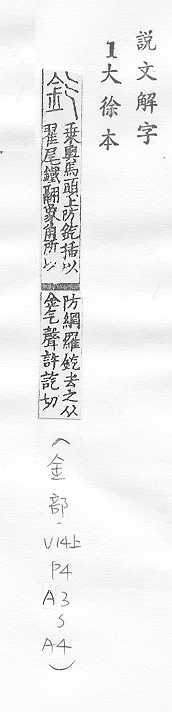 說文解字
1大徐本
乗輿馬頭上防釳插以
翟尾鐵翮象角所以
防綱羅釳去之从
金气聲許訖切
(金部-V14上
P4
A3
S
A4)